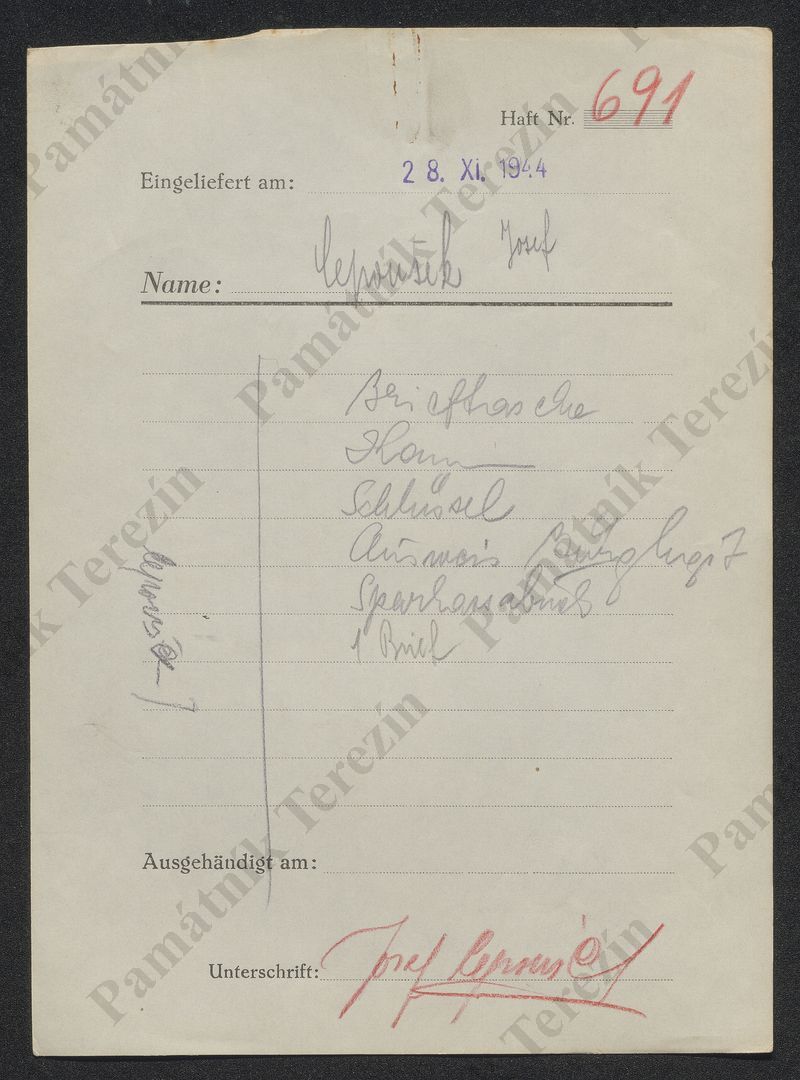 Haft Nr. 691
Eingeliefert am: 28. XI. 1944
Name: Josef
Brieftasche
Kamm
Schlüssel
Ausweis
Sparkassabuch
1 Brief
Ausgehändigt am:
Unterschrift: Josef
Památník Terezín
Památník Terezín
Památník Terezín
Památník Terezín
Památník Terezín